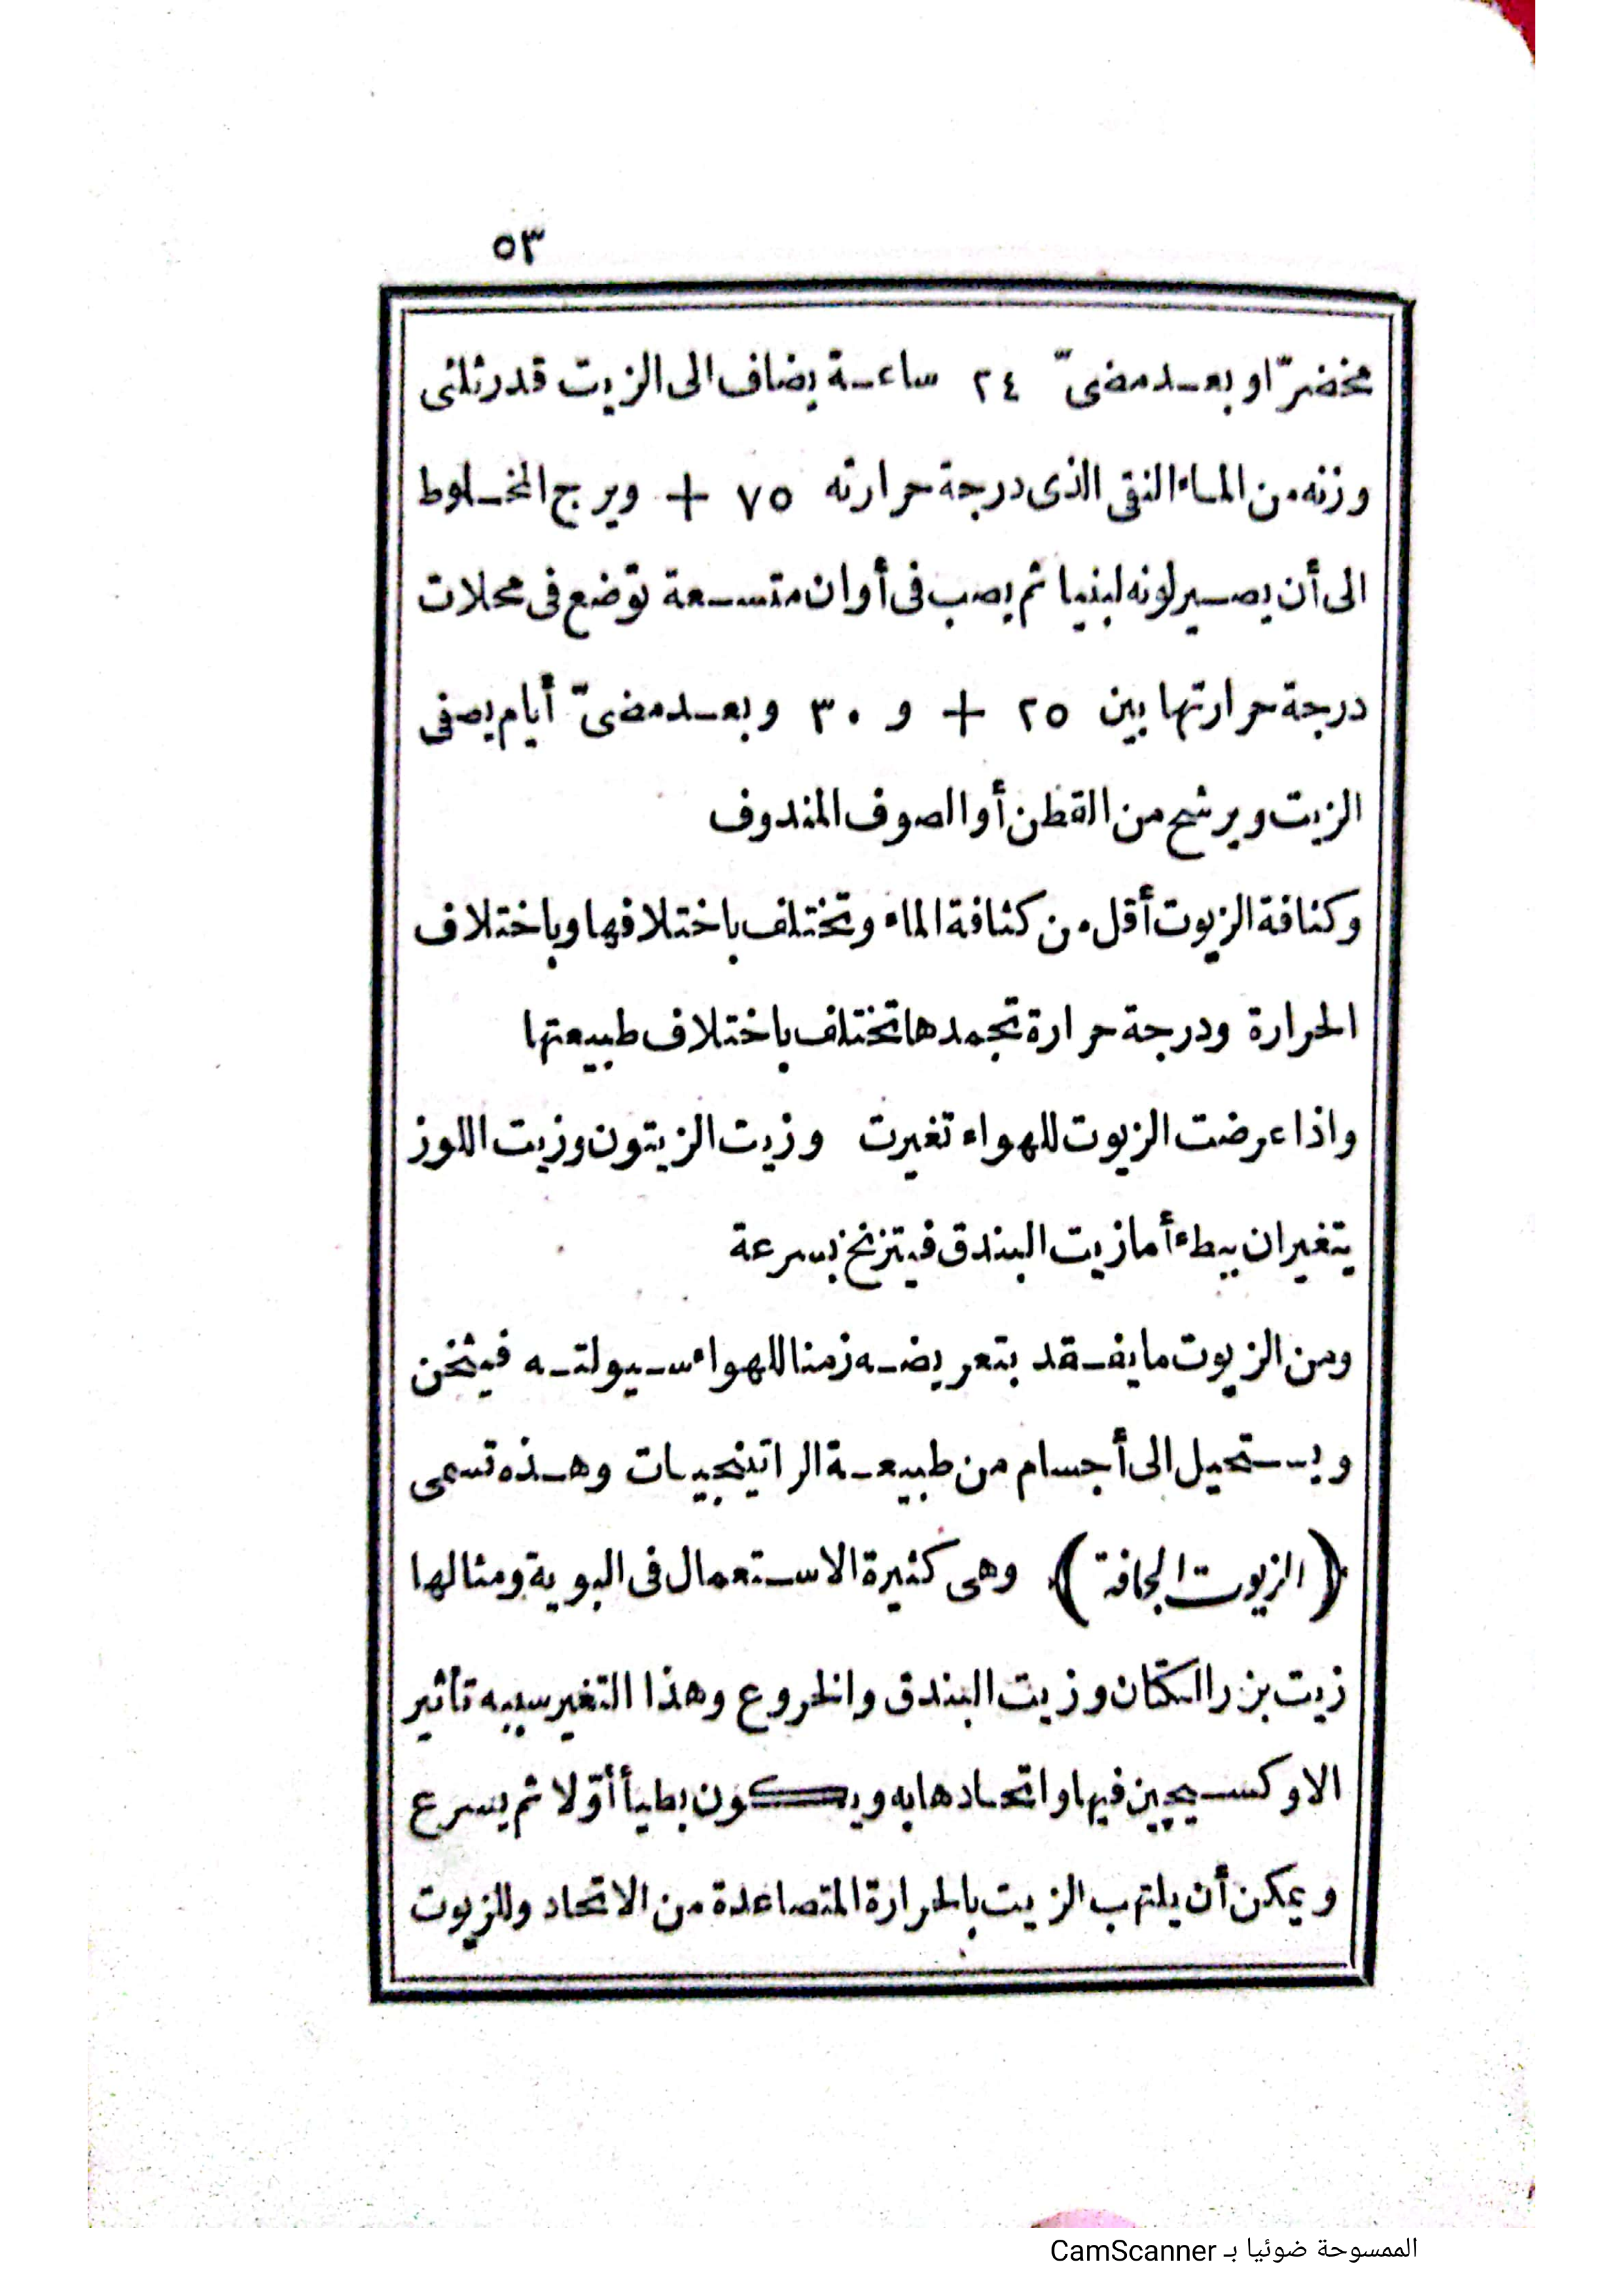 ٥٣
مخضرّا وبعد مضىّ ٢٤ ساعة يضاف الى الزيت قدر ثلثى
وزنه من الماء النقى الذى درجة حرارته ٧٥ + ويرج المخلوط
الى أن يصير لونه لبنيا ثم يصب فى أوان متسعة توضع فى محلات
درجة حرارتها بين ٢٥ + و ٣٠ وبعد مضىّ أيام يصفى
الزيت ويرشح من القطن أو الصوف المندوف
وكثافة الزيوت أقل من كثافة الماء وتختلف باختلافها وباختلاف
الحرارة ودرجة حرارة تجمدها تختلف باختلاف طبيعتها
واذا عرضت الزيوت للهواء تغيرت وزيت الزيتون وزيت اللوز
يتغيران ببطء أما زيت البندق فيتزنخ بسرعة
ومن الزيوت ما يفقد بتعريضه زمنا للهواء سيولته فيثخن
ويستحيل الى أجسام من طبيعة الراتينجيات وهذه تسمى
(الزيوت الجافة) وهى كثيرة الاستعمال فى البوية ومثالها
زيت بزر الكتان وزيت البندق والخروع وهذا التغير سببه تأثير
الاوكسيجين فيها واتحادها به ويكون بطيأ أوّلا ثم يسرع
ويمكن أن يلتهب الزيت بالحرارة المتصاعدة من الاتحاد وللزيوت
الممسوحة ضوئيا بـ CamScanner